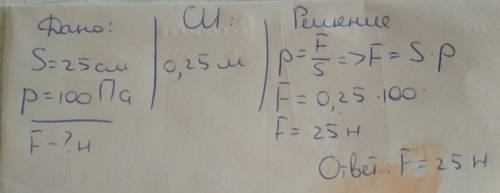 Дано:
S=25см
p=100Па
F-?н
СИ:
0,25м
Решение
p=F/S=>F=S·p
F=0,25·100
F=25н
Ответ: F=25н